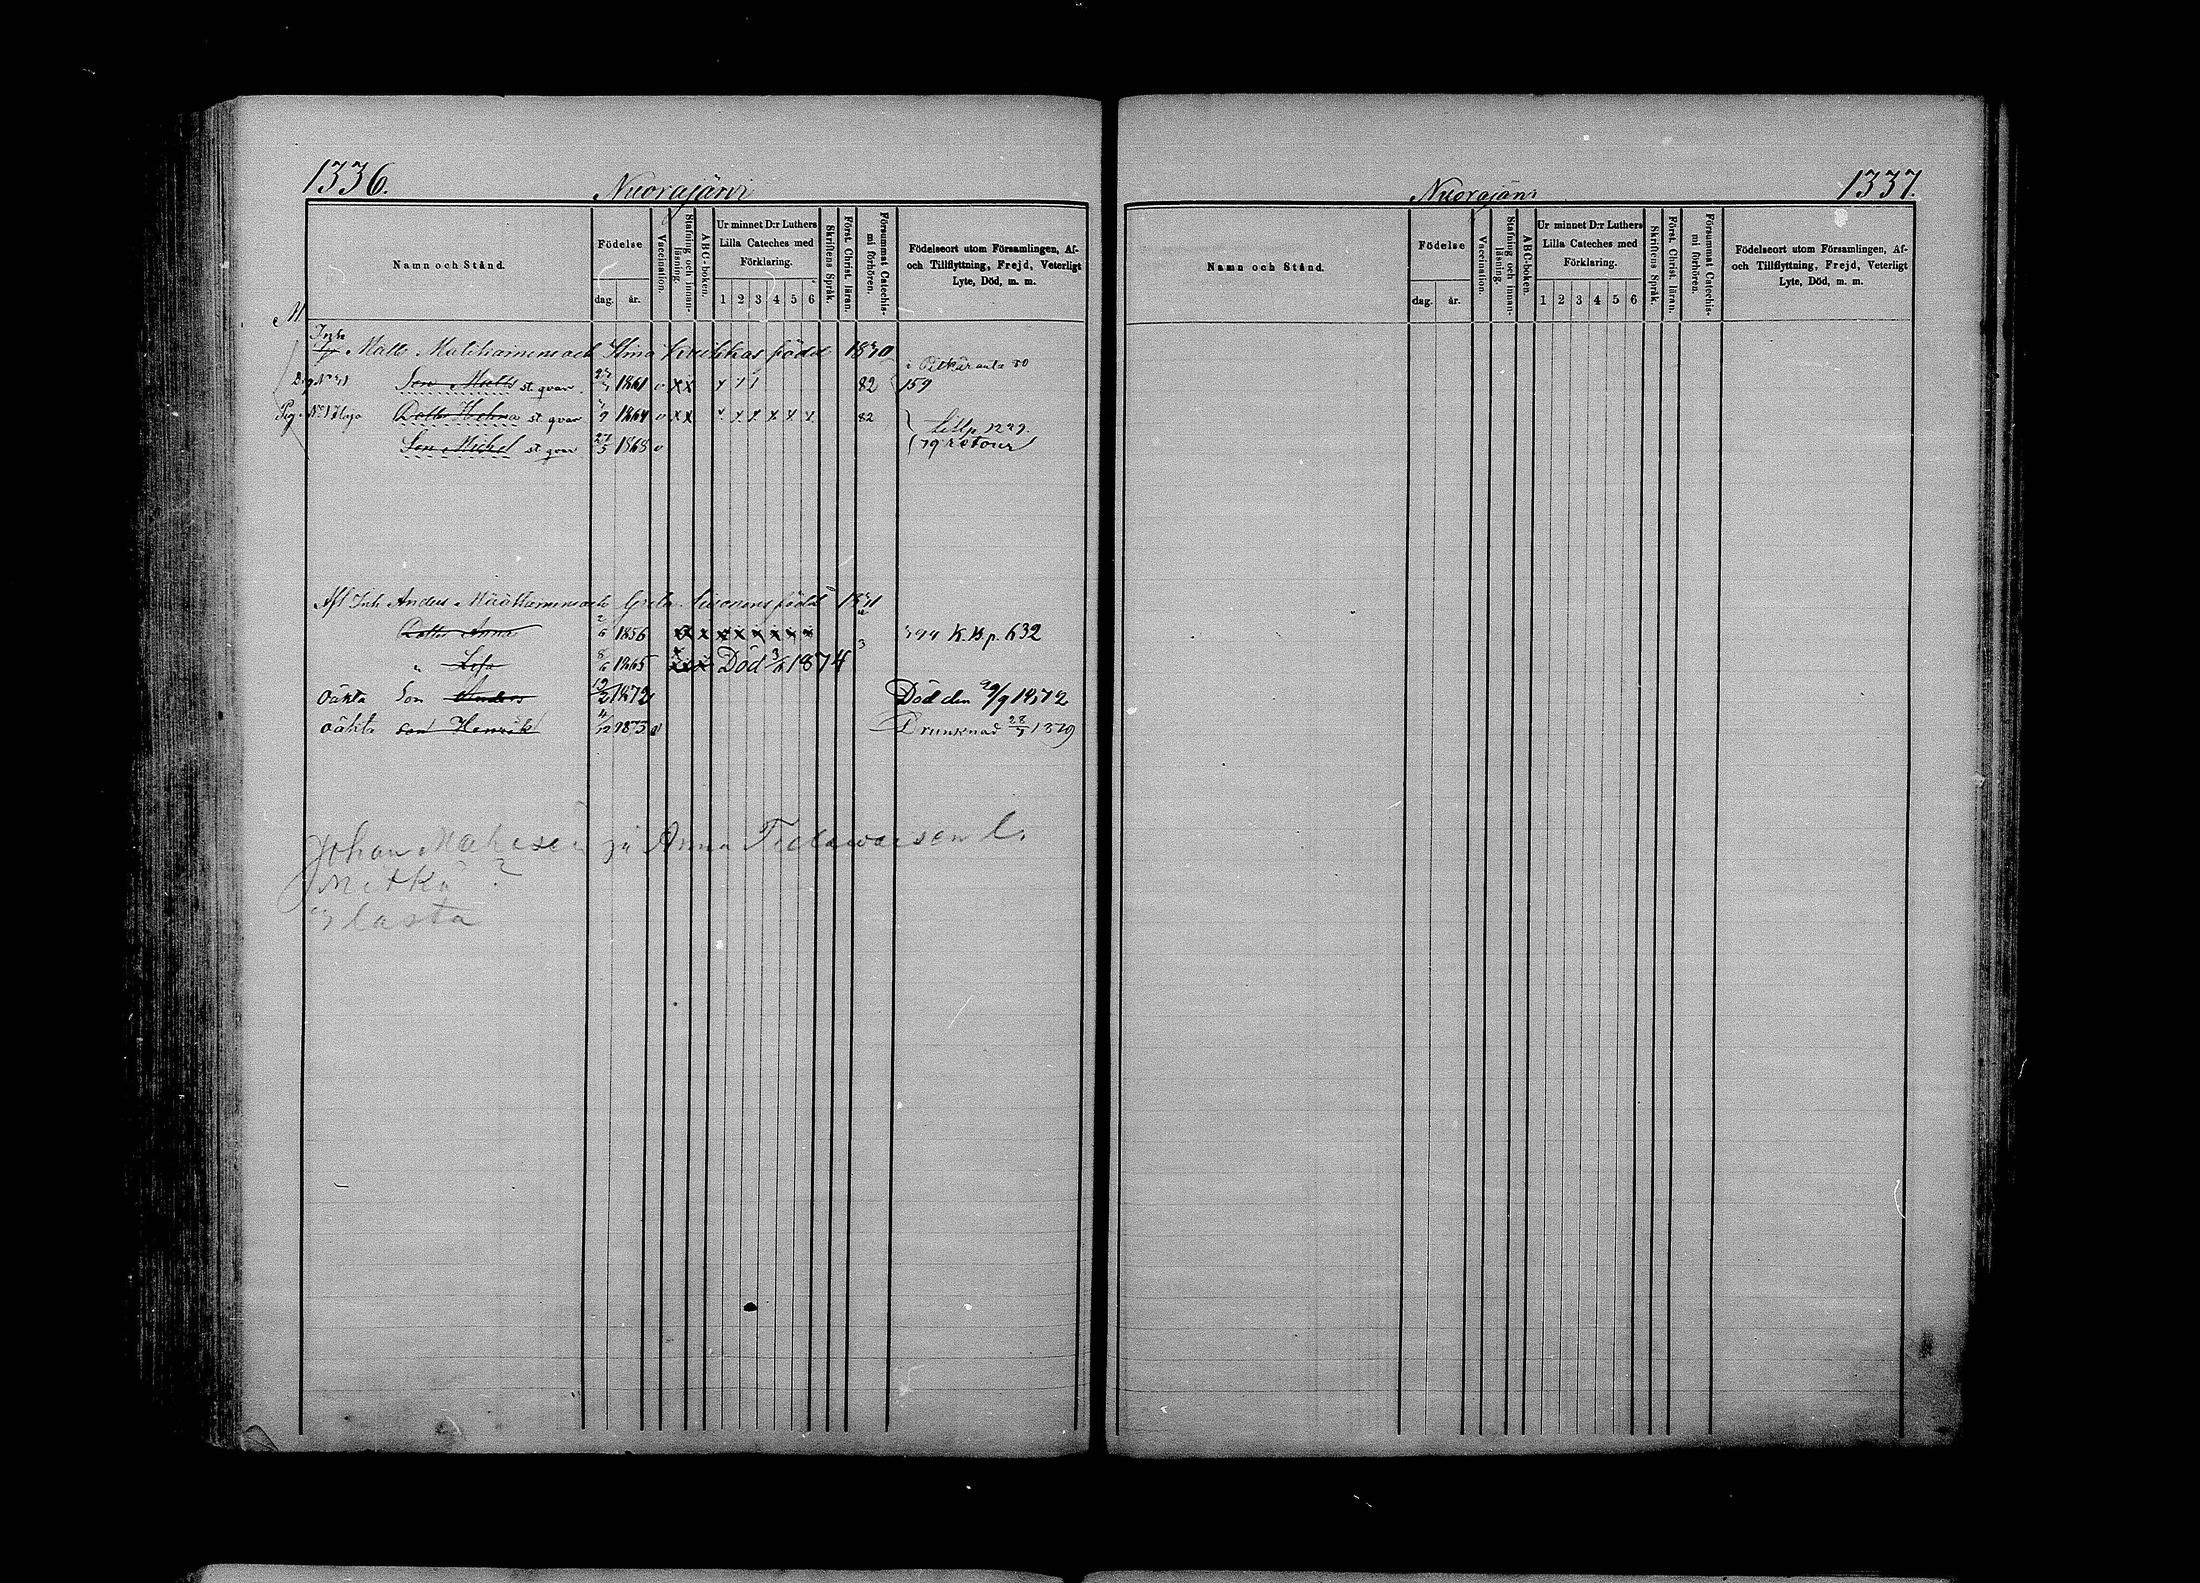 1336.
Nuorajärvi
Namn och Stånd.
Födelse
dag. år.
Vaccination.
Stafning och innanläsning.
ABC-boken.
Ur minnet D:r Luthers Lilla Cateches med Förklaring.
1 2 3 4 5 6
Skriftens Språk.
Först. Christ. läran.
Försummat Catechismi förhören.
Födelseort utom Församlingen, Af- och Tillflyttning, Frejd, Veterligt Lyte, Död, m. m.
Inh Matts och Stina född 1830
i Pitkäranta 80
Son Matts st. qvar 1861 v x x 82 159
Dottr Helena st. qvar 1864 v x x x x x x x x 82
Son Michel st qvar 27/5 1868 v 79 retour
Afl Inh Anders Määttänen och Greta född
Dottr Anna 2/6 1856 K.B. p. 632
" Lisa 8/6 1865 Död 1874 3
Oäkta Son Anders 1872 Död den 29/9 1872
oäkta son Henrik 1873 v Drunknad 28/5 1879
Johan ja Anna
lasta
Nuorajärvi
1337.
Namn och Stånd.
Födelse
dag. år.
Vaccination.
Stafning och innanläsning.
ABC-boken.
Ur minnet D:r Luthers Lilla Cateches med Förklaring.
1 2 3 4 5 6
Skriftens Språk.
Först. Christ. läran.
Försummat Catechismi förhören.
Födelseort utom Församlingen, Af- och Tillflyttning, Frejd, Veterligt Lyte, Död, m. m.